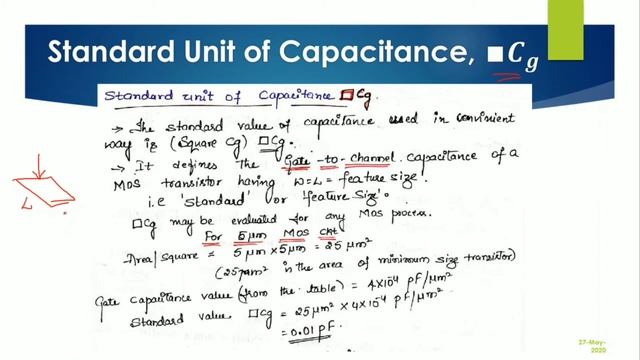 Standard Unit of Capacitance, ■Cg
Standard unit of Capacitance □Cg.
→ The standard value of capacitance used in convinient
way is (Square Cg) □Cg.
→ It defines the Gate-to-channel capacitance of a
MOS transistor having W=L= feature size.
i.e 'standard' or 'feature size'.
□Cg may be evaluated for any MOS process.
For 5μm MOS ckt
Area/square = 5μm × 5μm = 25μm²
(25μm² is the area of minimum size transistor)
Gate capacitance value (from the table) = 4×10⁻⁴ pF/μm²
Standard value □Cg = 25μm² × 4×10⁻⁴ pF/μm²
= 0.01 pF.
L
27-May-
2020